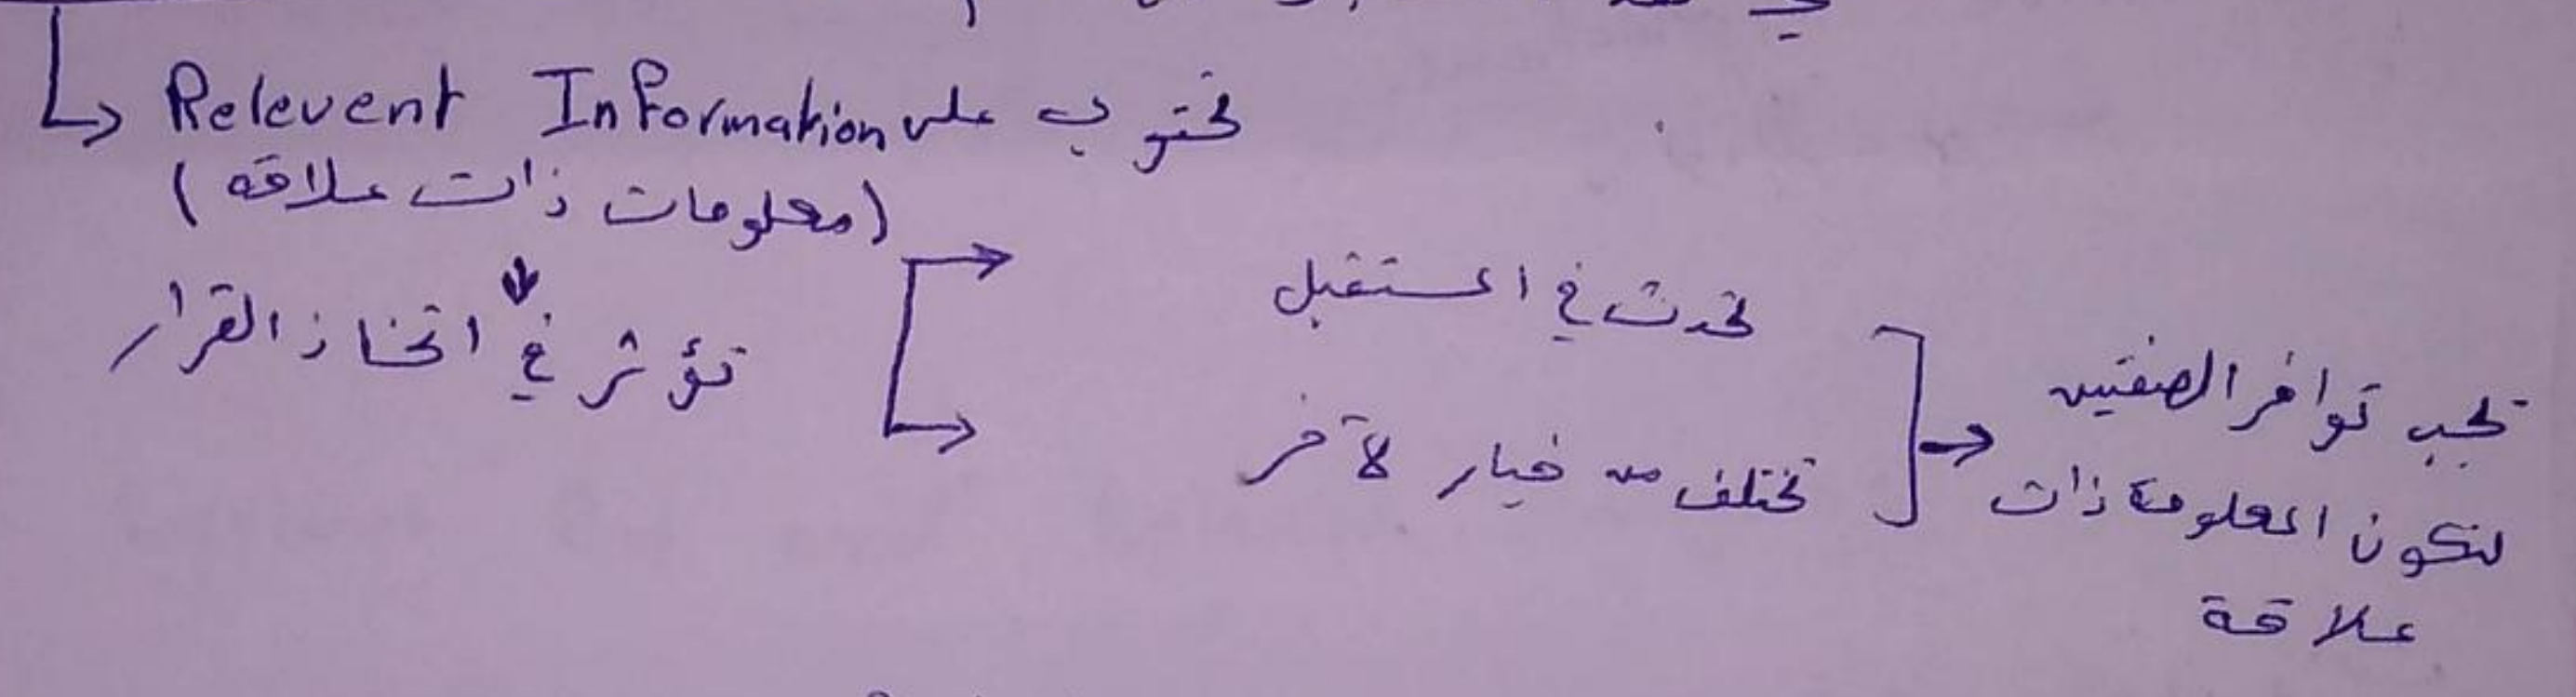 تحتوي على Relevent Information
(معلومات ذات علاقه)
تؤثر في اتخاذ القرار
تحدث في المستقبل
تختلف من خيار لآخر
يجب توافر الصفتين
لتكون المعلومة ذات
علاقة